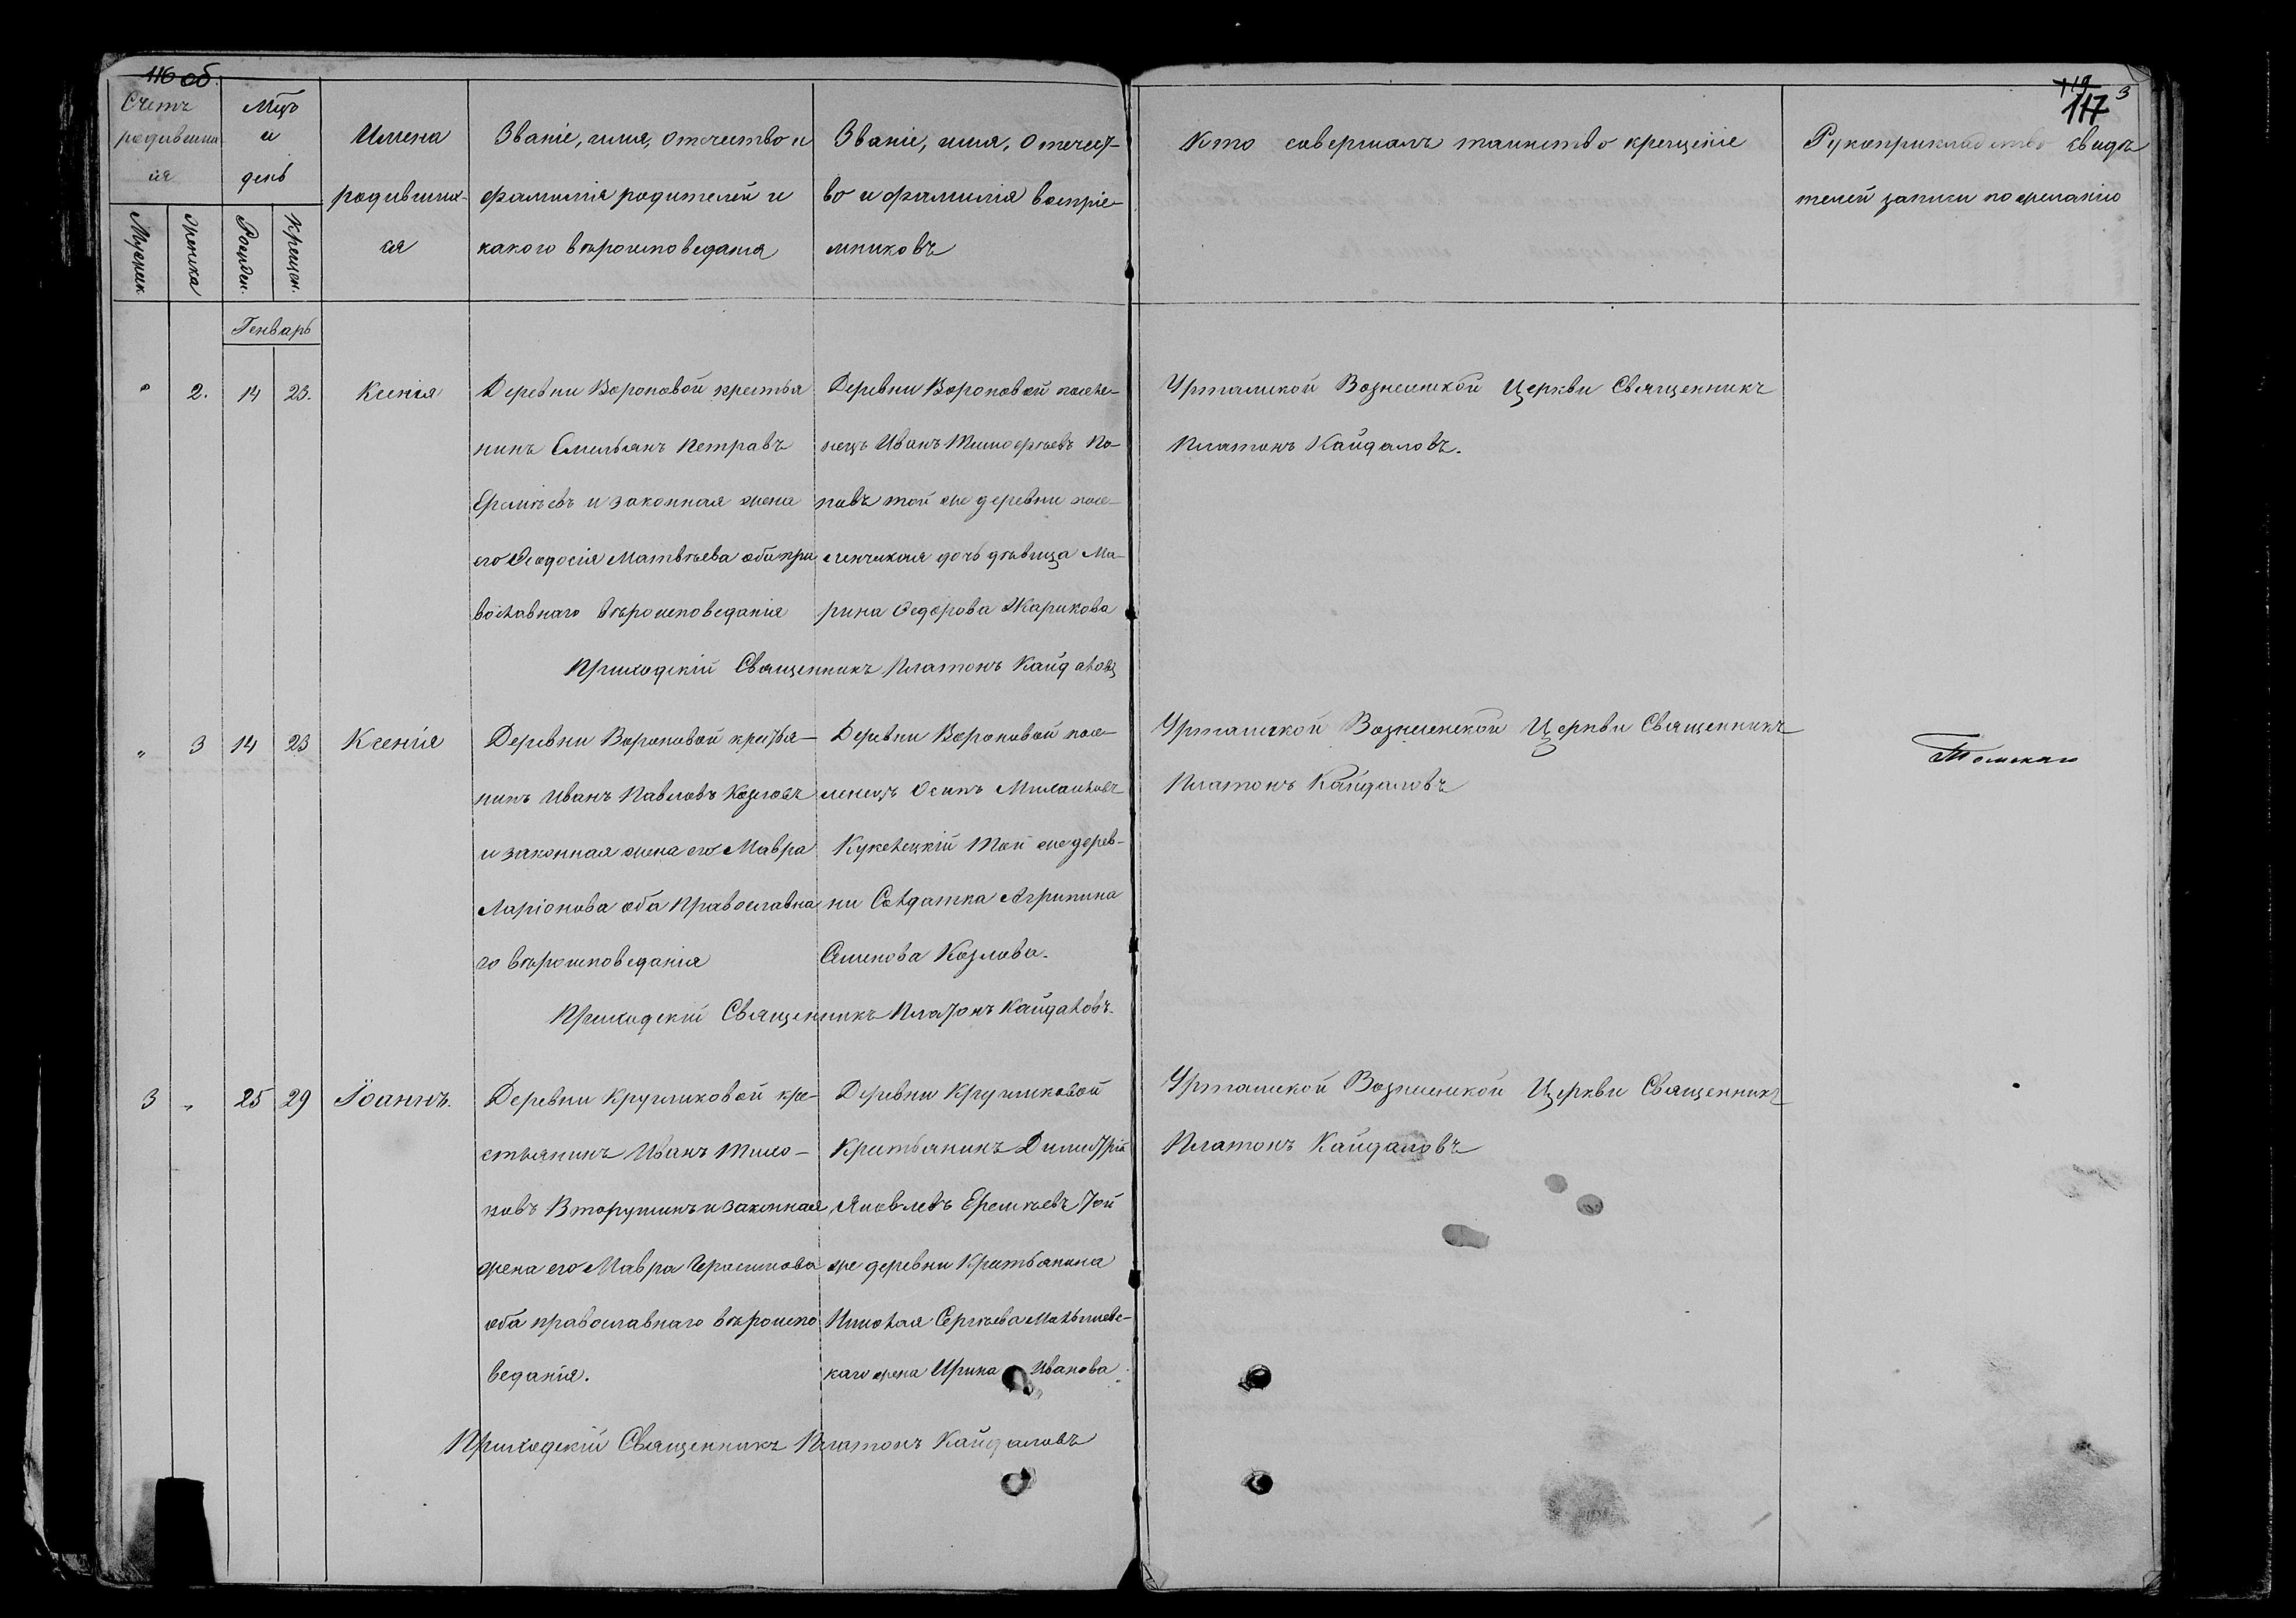 116 об.
119
117
3
Счетъ
родивших
ся
Мцъ
и
день
Имена
родивших-
ся
Званіе, имя, отчество и
фамилія родителей и
какого вѣроисповеданія
Званіе, имя, отечест-
во и фамилія воспріе-
мниковъ
Кто совершалъ таинство крещеніе
Рукоприкладство свидѣ
телей записи по желанію
Мужеск.
Женска
Рожден.
Крещен.
Генварь
" 2. 14 23. Ксенія
Деревни Вороновой крестья
нинъ Емильянъ Петравъ
Еремѣевъ и законная жена
его Ѳеодосія Матвѣева оба пра
вославнаго вѣроисповеданія
Деревни Вороновой посе-
ленецъ Иванъ Тимофѣевъ По-
повъ той же деревни посе-
ленческая дочь дѣвица Ма-
рина Ѳедорова Жарикова
Приходскій Священникъ Платонъ Кайдаловъ
Урташской Вознесенской Церкви Священникъ
Платонъ Кайдаловъ.
" 3 14 23 Ксенія
Деревни Вороновой крестья-
нинъ Иванъ Павловъ Козловъ
и законная жена его Мавра
Ларіонова оба православна
го вѣроисповеданія
Деревни Вороновой посе-
ленецъ Осипъ
Той же дерев-
ни Солдатка Агрипина
Семенова Козлова.
Приходскій Священникъ Платонъ Кайдаловъ.
Урташской Вознесенской Церкви Священникъ
Платонъ Кайдаловъ
Томскаго
3 " 25 29 Іоаннъ.
Деревни Кругликовой кре-
стьянинъ Иванъ Тимо-
Вторушинъ и законная
жена его Мавра Герасимова
оба православнаго вѣроиспо
веданія.
Деревни Кругликовой
Крестьянинъ Димитрій
Яковлевъ Еремѣевъ Той
же деревни Крестьянина
Николая Сергѣева Малышевс-
каго жена Ирина Иванова.
Приходскій Священникъ Платонъ Кайдаловъ
Урташской Вознесенской Церкви Священникъ
Платонъ Кайдаловъ